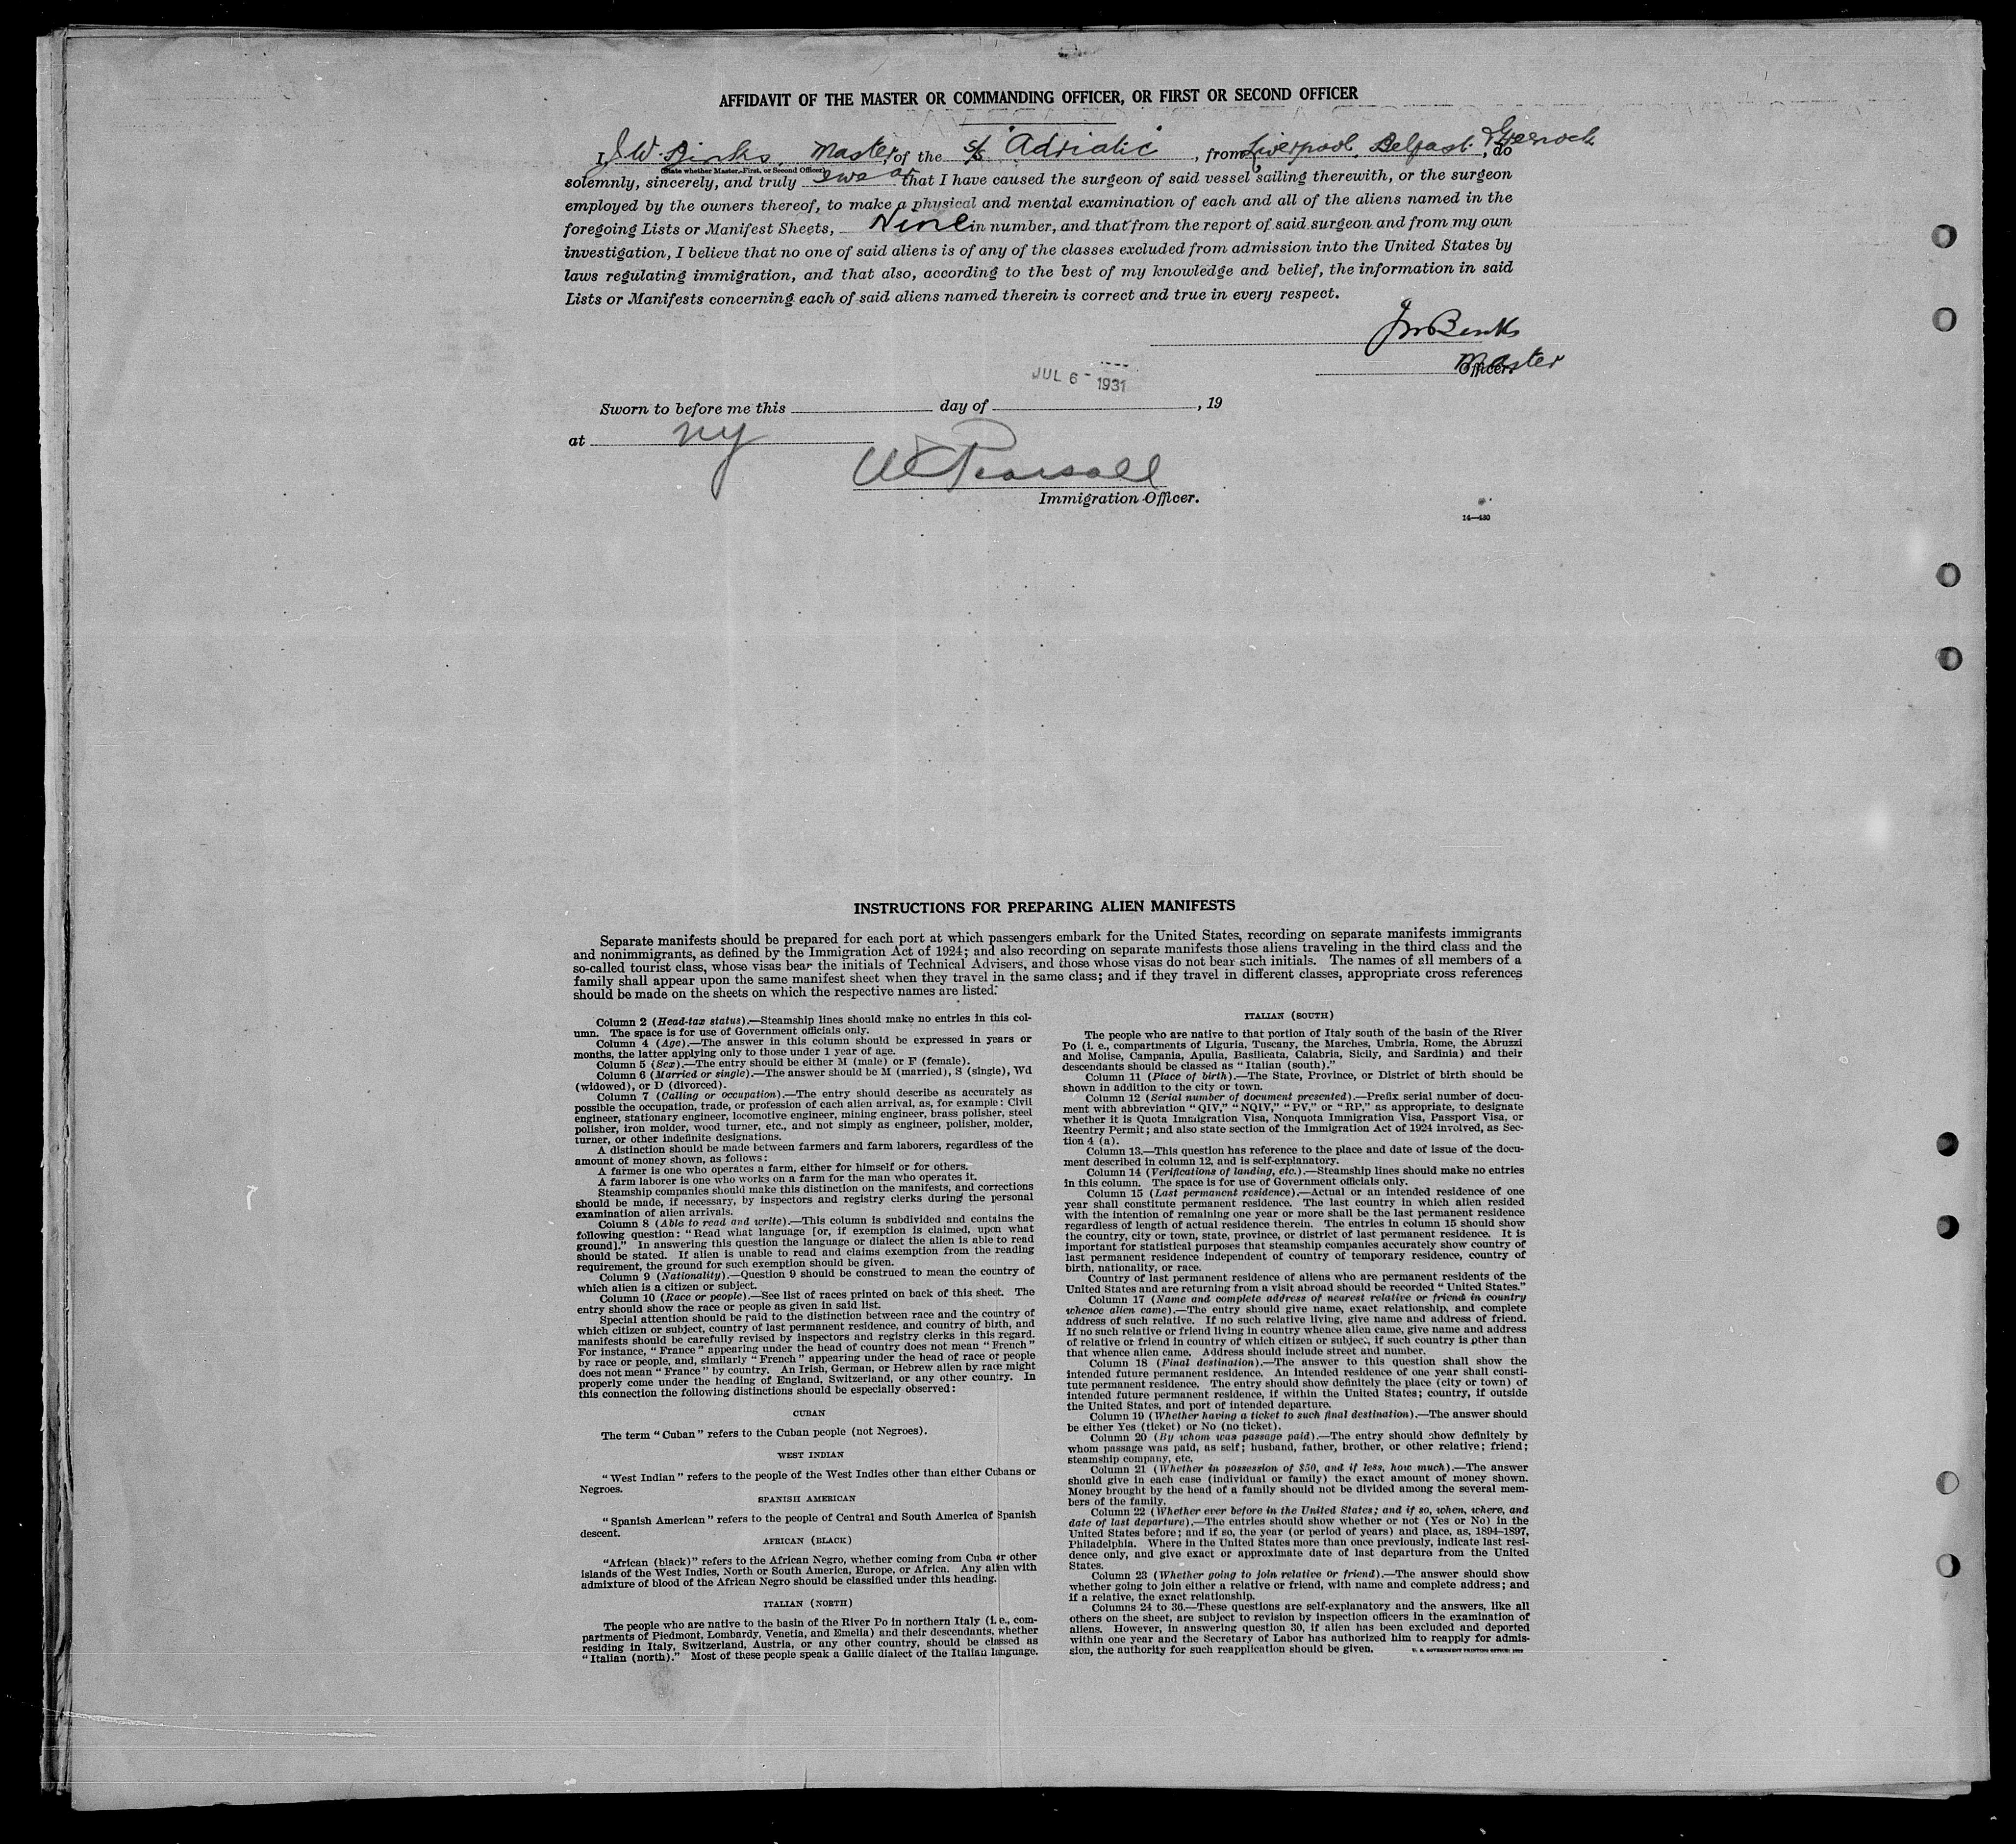 AFFIDAVIT OF THE MASTER OR COMMANDING OFFICER, OR FIRST OR SECOND OFFICER
I, J W. Binks, Master of the S/S "Adriatic", from Liverpool, Belfast & Greenock, do
(State whether Master, First, or Second Officer)
solemnly, sincerely, and truly swear that I have caused the surgeon of said vessel sailing therewith, or the surgeon
employed by the owners thereof, to make a physical and mental examination of each and all of the aliens named in the
foregoing Lists or Manifest Sheets, Nine in number, and that from the report of said surgeon and from my own
investigation, I believe that no one of said aliens is of any of the classes excluded from admission into the United States by
laws regulating immigration, and that also, according to the best of my knowledge and belief, the information in said
Lists or Manifests concerning each of said aliens named therein is correct and true in every respect.
JW Binks
Master
Officer.
JUL 6 - 1931
Sworn to before me this day of , 19
at NY
Pearsall
Immigration Officer.
14—430
INSTRUCTIONS FOR PREPARING ALIEN MANIFESTS
Separate manifests should be prepared for each port at which passengers embark for the United States, recording on separate manifests immigrants
and nonimmigrants, as defined by the Immigration Act of 1924; and also recording on separate manifests those aliens traveling in the third class and the
so-called tourist class, whose visas bear the initials of Technical Advisers, and those whose visas do not bear such initials. The names of all members of a
family shall appear upon the same manifest sheet when they travel in the same class; and if they travel in different classes, appropriate cross references
should be made on the sheets on which the respective names are listed.
Column 2 (Head-tax status).—Steamship lines should make no entries in this col-
umn. The space is for use of Government officials only.
Column 4 (Age).—The answer in this column should be expressed in years or
months, the latter applying only to those under 1 year of age.
Column 5 (Sex).—The entry should be either M (male) or F (female).
Column 6 (Married or single).—The answer should be M (married), S (single), Wd
(widowed), or D (divorced).
Column 7 (Calling or occupation).—The entry should describe as accurately as
possible the occupation, trade, or profession of each alien arrival, as, for example: Civil
engineer, stationary engineer, locomotive engineer, mining engineer, brass polisher, steel
polisher, iron molder, wood turner, etc., and not simply as engineer, polisher, molder,
turner, or other indefinite designations.
A distinction should be made between farmers and farm laborers, regardless of the
amount of money shown, as follows:
A farmer is one who operates a farm, either for himself or for others.
A farm laborer is one who works on a farm for the man who operates it.
Steamship companies should make this distinction on the manifests, and corrections
should be made, if necessary, by inspectors and registry clerks during the personal
examination of alien arrivals.
Column 8 (Able to read and write).—This column is subdivided and contains the
following question: "Read what language [or, if exemption is claimed, upon what
ground]." In answering this question the language or dialect the alien is able to read
should be stated. If alien is unable to read and claims exemption from the reading
requirement, the ground for such exemption should be given.
Column 9 (Nationality).—Question 9 should be construed to mean the country of
which alien is a citizen or subject.
Column 10 (Race or people).—See list of races printed on back of this sheet. The
entry should show the race or people as given in said list.
Special attention should be paid to the distinction between race and the country of
which citizen or subject, country of last permanent residence, and country of birth, and
manifests should be carefully revised by inspectors and registry clerks in this regard.
For instance, "France" appearing under the head of country does not mean "French"
by race or people, and, similarly "French" appearing under the head of race or people
does not mean "France" by country. An Irish, German, or Hebrew alien by race might
properly come under the heading of England, Switzerland, or any other country. In
this connection the following distinctions should be especially observed:
CUBAN
The term "Cuban" refers to the Cuban people (not Negroes).
WEST INDIAN
"West Indian" refers to the people of the West Indies other than either Cubans or
Negroes.
SPANISH AMERICAN
"Spanish American" refers to the people of Central and South America of Spanish
descent.
AFRICAN (BLACK)
"African (black)" refers to the African Negro, whether coming from Cuba or other
islands of the West Indies, North or South America, Europe, or Africa. Any alien with
admixture of blood of the African Negro should be classified under this heading.
ITALIAN (NORTH)
The people who are native to the basin of the River Po in northern Italy (i. e., com-
partments of Piedmont, Lombardy, Venetia, and Emelia) and their descendants, whether
residing in Italy, Switzerland, Austria, or any other country, should be classed as
"Italian (north)." Most of these people speak a Gallic dialect of the Italian language.
ITALIAN (SOUTH)
The people who are native to that portion of Italy south of the basin of the River
Po (i. e., compartments of Liguria, Tuscany, the Marches, Umbria, Rome, the Abruzzi
and Molise, Campania, Apulia, Basilicata, Calabria, Sicily, and Sardinia) and their
descendants should be classed as "Italian (south)."
Column 11 (Place of birth).—The State, Province, or District of birth should be
shown in addition to the city or town.
Column 12 (Serial number of document presented).—Prefix serial number of docu-
ment with abbreviation "QIV," "NQIV," "PV," or "RP," as appropriate, to designate
whether it is Quota Immigration Visa, Nonquota Immigration Visa, Passport Visa, or
Reentry Permit; and also state section of the Immigration Act of 1924 involved, as Sec-
tion 4 (a).
Column 13.—This question has reference to the place and date of issue of the docu-
ment described in column 12, and is self-explanatory.
Column 14 (Verifications of landing, etc.).—Steamship lines should make no entries
in this column. The space is for use of Government officials only.
Column 15 (Last permanent residence).—Actual or an intended residence of one
year shall constitute permanent residence. The last country in which alien resided
with the intention of remaining one year or more shall be the last permanent residence
regardless of length of actual residence therein. The entries in column 15 should show
the country, city or town, state, province, or district of last permanent residence. It is
important for statistical purposes that steamship companies accurately show country of
last permanent residence independent of country of temporary residence, country of
birth, nationality, or race.
Country of last permanent residence of aliens who are permanent residents of the
United States and are returning from a visit abroad should be recorded "United States."
Column 17 (Name and complete address of nearest relative or friend in country
whence alien came).—The entry should give name, exact relationship, and complete
address of such relative. If no such relative living, give name and address of friend.
If no such relative or friend living in country whence alien came, give name and address
of relative or friend in country of which citizen or subject, if such country is other than
that whence alien came. Address should include street and number.
Column 18 (Final destination).—The answer to this question shall show the
intended future permanent residence. An intended residence of one year shall consti-
tute permanent residence. The entry should show definitely the place (city or town) of
intended future permanent residence, if within the United States; country, if outside
the United States, and port of intended departure.
Column 19 (Whether having a ticket to such final destination).—The answer should
be either Yes (ticket) or No (no ticket).
Column 20 (By whom was passage paid).—The entry should show definitely by
whom passage was paid, as self; husband, father, brother, or other relative; friend;
steamship company, etc.
Column 21 (Whether in possession of $50, and if less, how much).—The answer
should give in each case (individual or family) the exact amount of money shown.
Money brought by the head of a family should not be divided among the several mem-
bers of the family.
Column 22 (Whether ever before in the United States; and if so, when, where, and
date of last departure).—The entries should show whether or not (Yes or No) in the
United States before; and if so, the year (or period of years) and place, as, 1894–1897,
Philadelphia. Where in the United States more than once previously, indicate last resi-
dence only, and give exact or approximate date of last departure from the United
States.
Column 23 (Whether going to join relative or friend).—The answer should show
whether going to join either a relative or friend, with name and complete address; and
if a relative, the exact relationship.
Columns 24 to 36.—These questions are self-explanatory and the answers, like all
others on the sheet, are subject to revision by inspection officers in the examination of
aliens. However, in answering question 30, if alien has been excluded and deported
within one year and the Secretary of Labor has authorized him to reapply for admis-
sion, the authority for such reapplication should be given. U. S. GOVERNMENT PRINTING OFFICE: